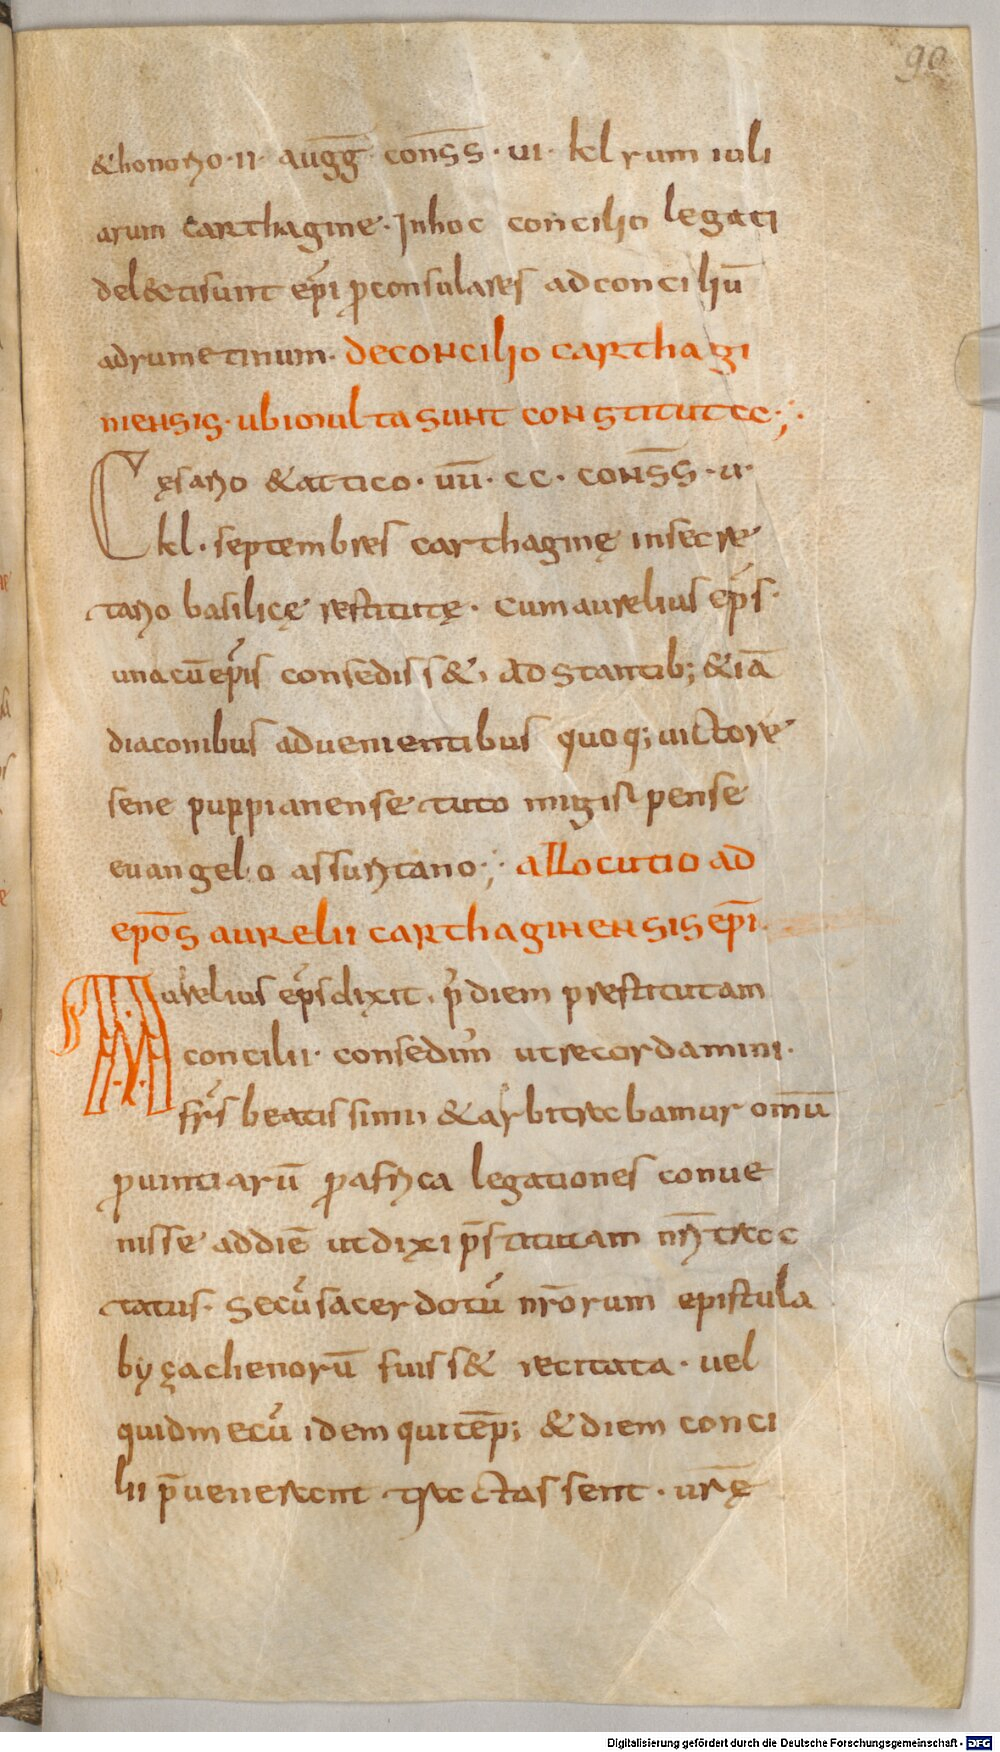 90
&honorio·ii· augg̅· cons̅s̅·ui· kl̅rum iuli
arum carthagine·Inhoc concilio legati
del&tisunt epi̅ p̱consulares adconciliu̅
adrumetinum· deconcilio carthagi
niensis·ubimulta sunt constitutae;·
Cęsario &attico·uu̅·cc·cons̅s̅·u·
kl·septembres carthaginę insecre
tario basilicę restitutę·cumaurelius ep̅s·
unacu̅epi̅s consediss&·adstantib;&ia̅
diaconibus aduenientibus quoq;uictore
sene puppianense tuto migirpense
euangelio assuritano;· allocutio ad
epo̅s aurelii carthaginensis epi̅
Aurelius ep̅sdixit·p̱diem prestitutam
concilii·consedim̅ utrecordamini·
fr̅s beatissimi &arbitrabamur omniu̅
p̱uintiaru̅ p̱africa legationes conue
nisse addie̅ utdixi p̅stitutam nr̅itrac
tatus·Secu̅sacerdotu̅ nr̅orum epistula
byzachenoru̅ fuiss& recitata·uel
quidmecu̅ idem quite̅p; &diem conci
lii p̅uenerant tractassent·ur̅ę
Digitalisierung gefördert durch die Deutsche Forschungsgemeinschaft - DFG